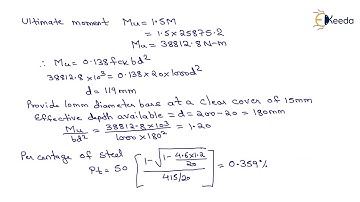 Ekeeda
Ultimate moment Mu = 1.5M
= 1.5 x 25875.2
Mu = 38812.8 N-m
∴ Mu = 0.138 fck bd²
38812.8 x 10³ = 0.138 x 20 x 1000 d²
d = 119 mm
Provide 10mm diameter bars at a clear cover of 15mm
Effective depth available = d = 200 - 20 = 180mm
Mu/bd² = 38812.8 x 10³/1000 x 180² = 1.20
Percentage of steel
Pt = 50 [1 - √1 - 4.6x1.2/20 / 415/20] = 0.359%